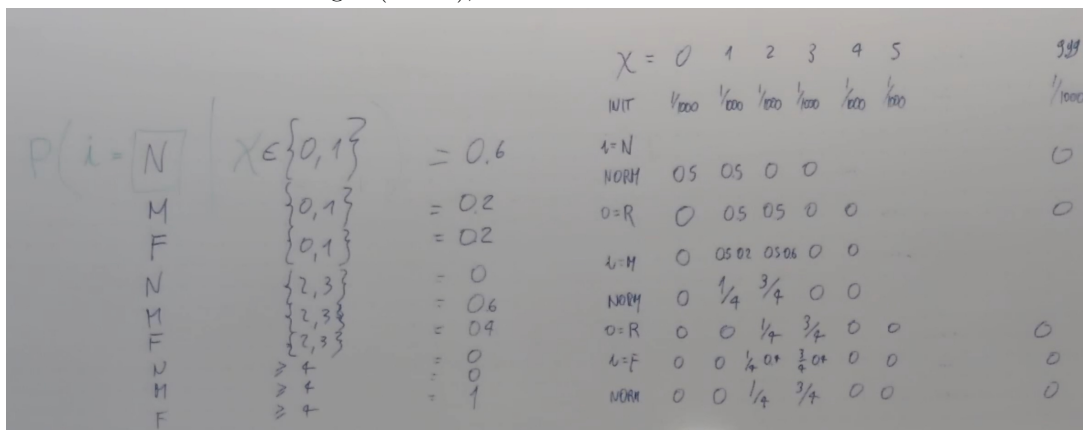 P(i = N | X ∈ {0,1} ) = 0.6
M {0,1} = 02
F {0,1} = 02
N {2,3} = 0
M {2,3} = 06
F {2,3} = 04
N ≥ 4 = 0
M ≥ 4 = 0
F ≥ 4 = 1
X = 0 1 2 3 4 5 999
INIT 1/1000 1/1000 1/1000 1/1000 1/1000 1/1000 1/1000
i=N 0
NORM 05 05 0 0
O=R 0 05 05 0 0 0
i=M 0 0502 0506 0 0
NORM 0 1/4 3/4 0 0
O=R 0 0 1/4 3/4 0 0 0
i=F 0 0 1/4 04 3/4 04 0 0 0
NORM 0 0 1/4 3/4 0 0 0